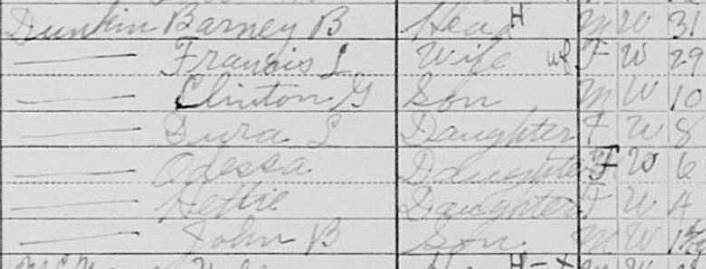 Dunkin Barney B Head H M W 31
Francis L Wife wf F W 29
Clinton G Son M W 10
Dura L Daughter F W 8
Odessa Daughter F W 6
Hettie Daughter F W 4
John B Son M W